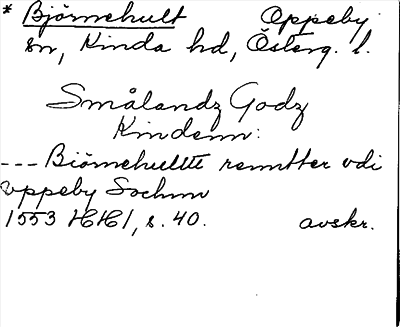 * Björnehult Oppeby
sn, Kinda hd, Österg. l.
Smålandz Godz
Kindenn:
--- Biörnehulltt renntter vdi
vppeby Sochnn
1553 HH 1, s. 40. avskr.